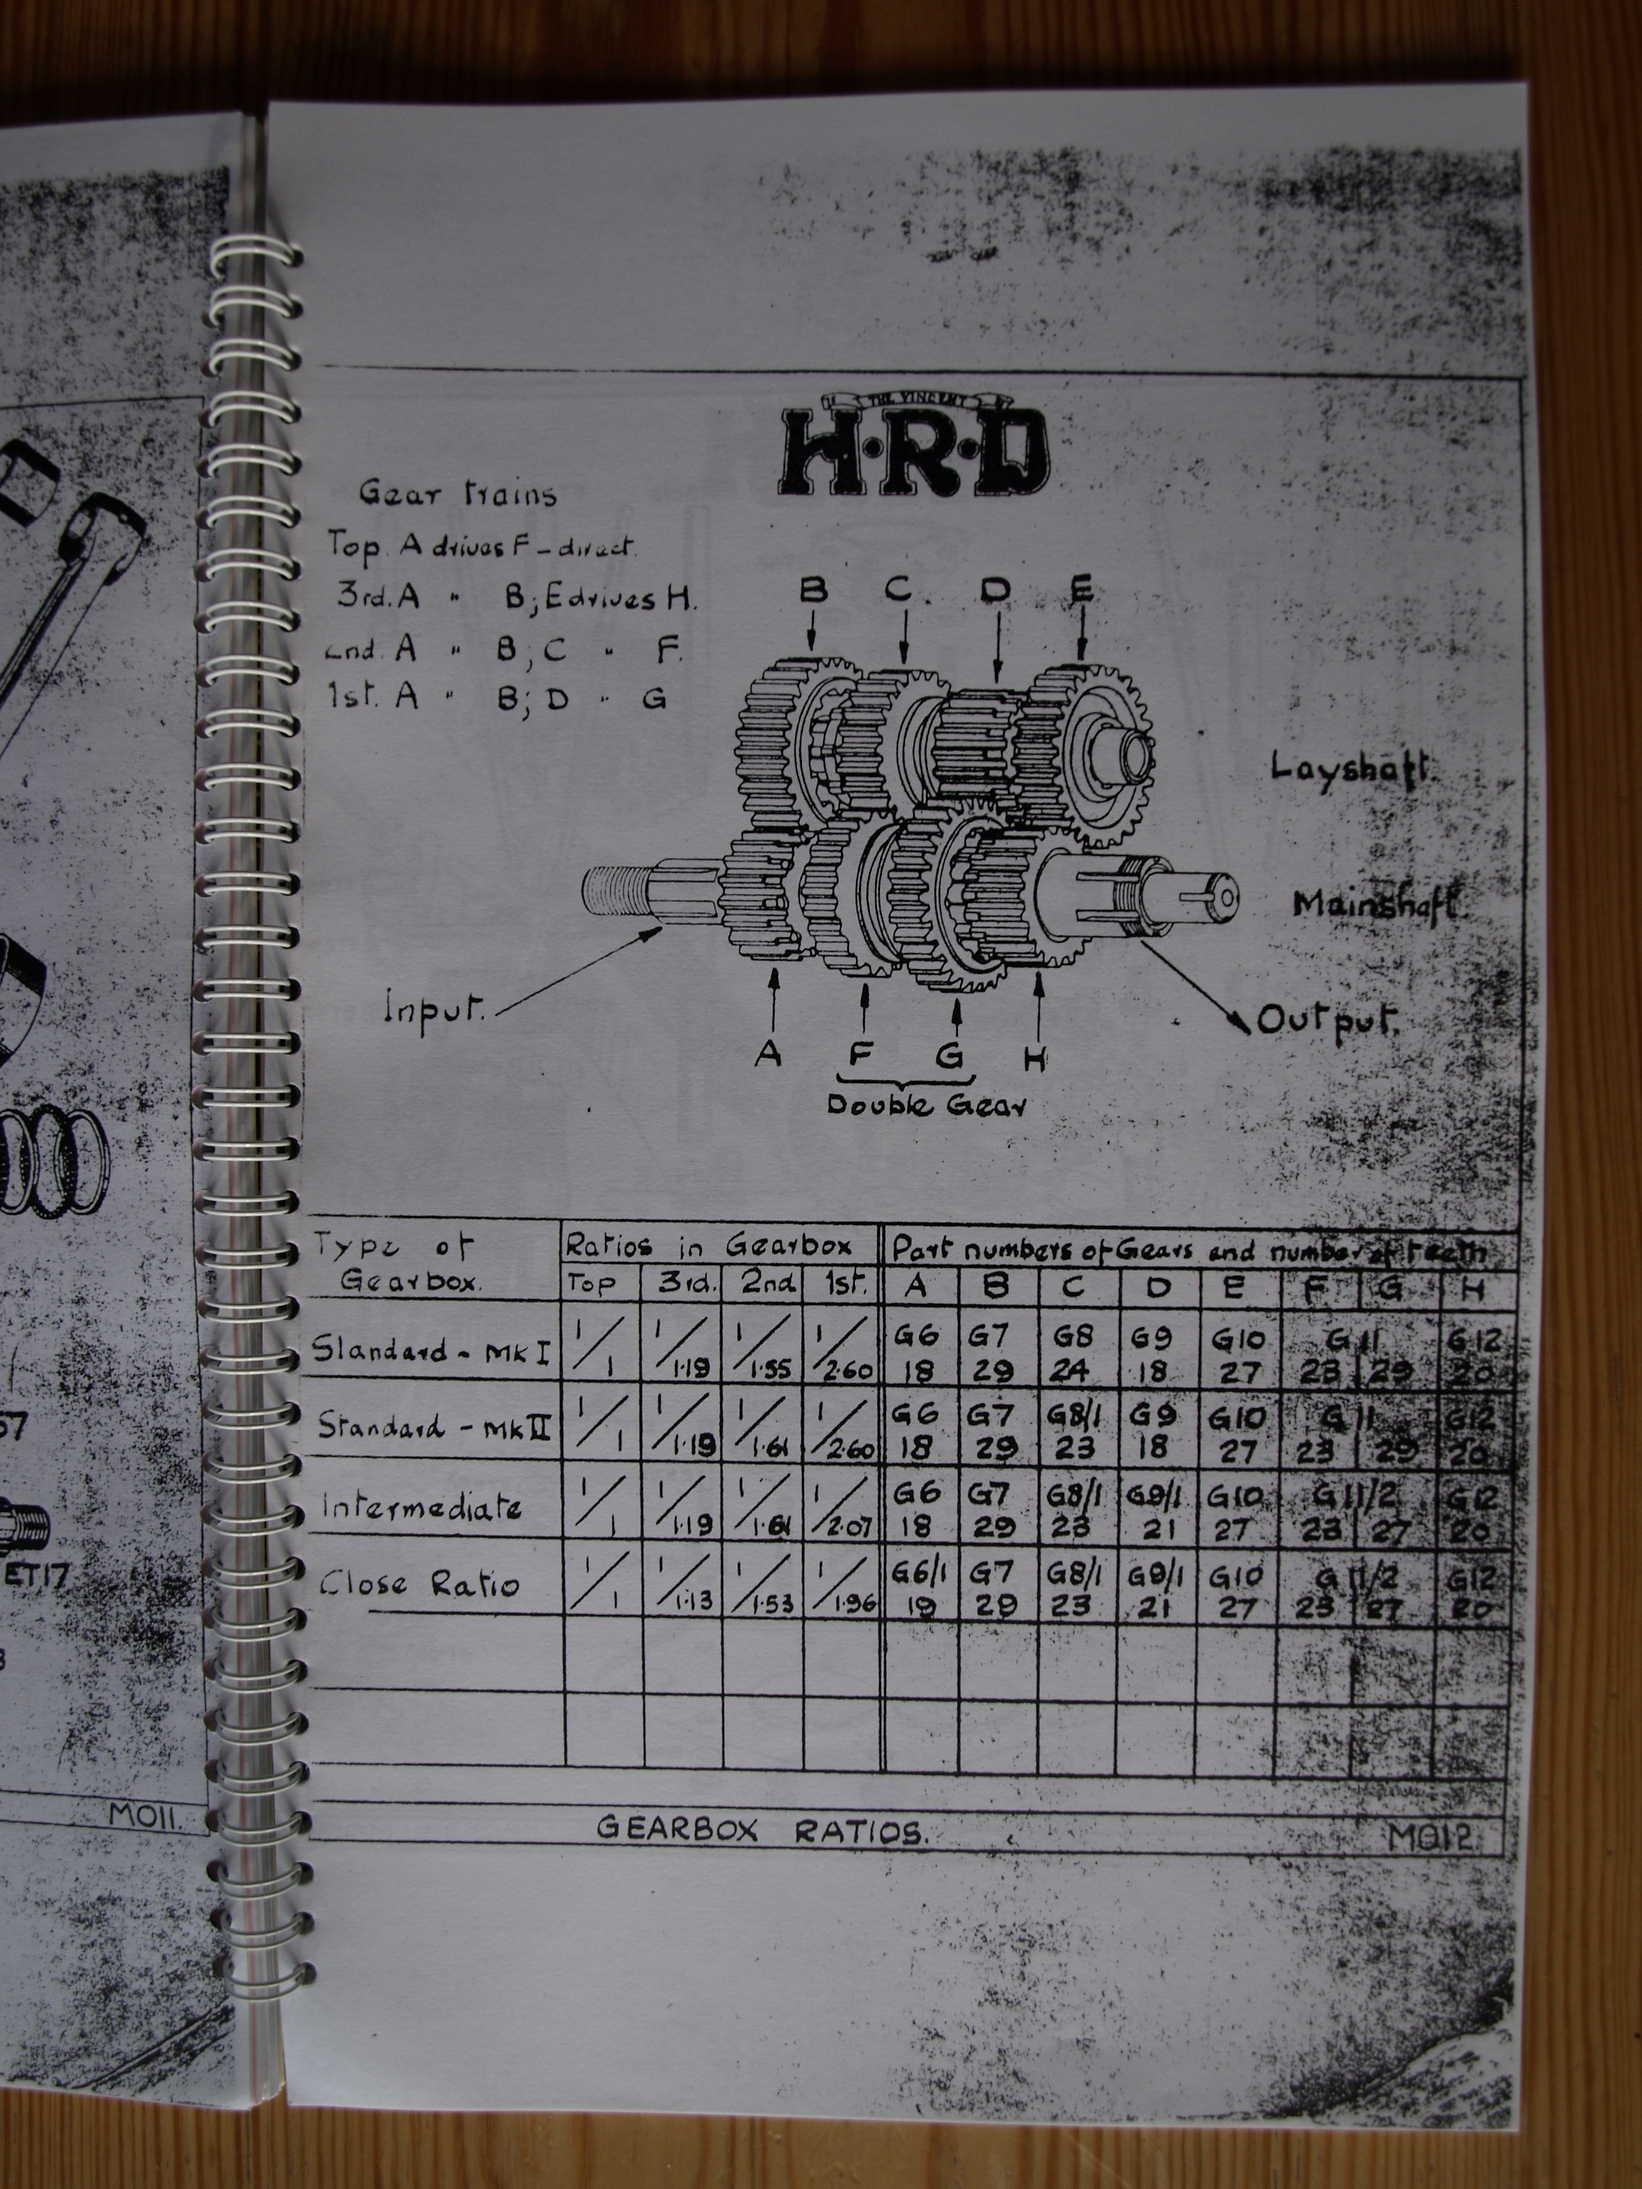 THE VINCENT
H·R·D
Gear trains
Top. A drives F - direct.
3rd. A " B; E drives H.
2nd. A " B; C " F.
1st. A " B; D " G
B C. D E
Layshaft.
Mainshaft.
Input.
Output.
A F G H
Double Gear
Type of Gearbox. Ratios in Gearbox Part numbers of Gears and number of teeth
Top 3rd. 2nd 1st. A B C D E F G H
Standard - Mk I 1/1 1/1·19 1/1·55 1/2·60 G6 G7 G8 G9 G10 G11 G12
18 29 24 18 27 23 29 20
Standard - Mk II 1/1 1/1·19 1/1·61 1/2·60 G6 G7 G8/1 G9 G10 G11 G12
18 29 23 18 27 23 29 20
Intermediate 1/1 1/1·19 1/1·61 1/2·07 G6 G7 G8/1 G9/1 G10 G11/2 G12
18 29 23 21 27 23 27 20
Close Ratio 1/1 1/1·13 1/1·53 1/1·96 G6/1 G7 G8/1 G9/1 G10 G11/2 G12
19 29 23 21 27 23 27 20
GEARBOX RATIOS. MO12.
57
ET17
MO11.